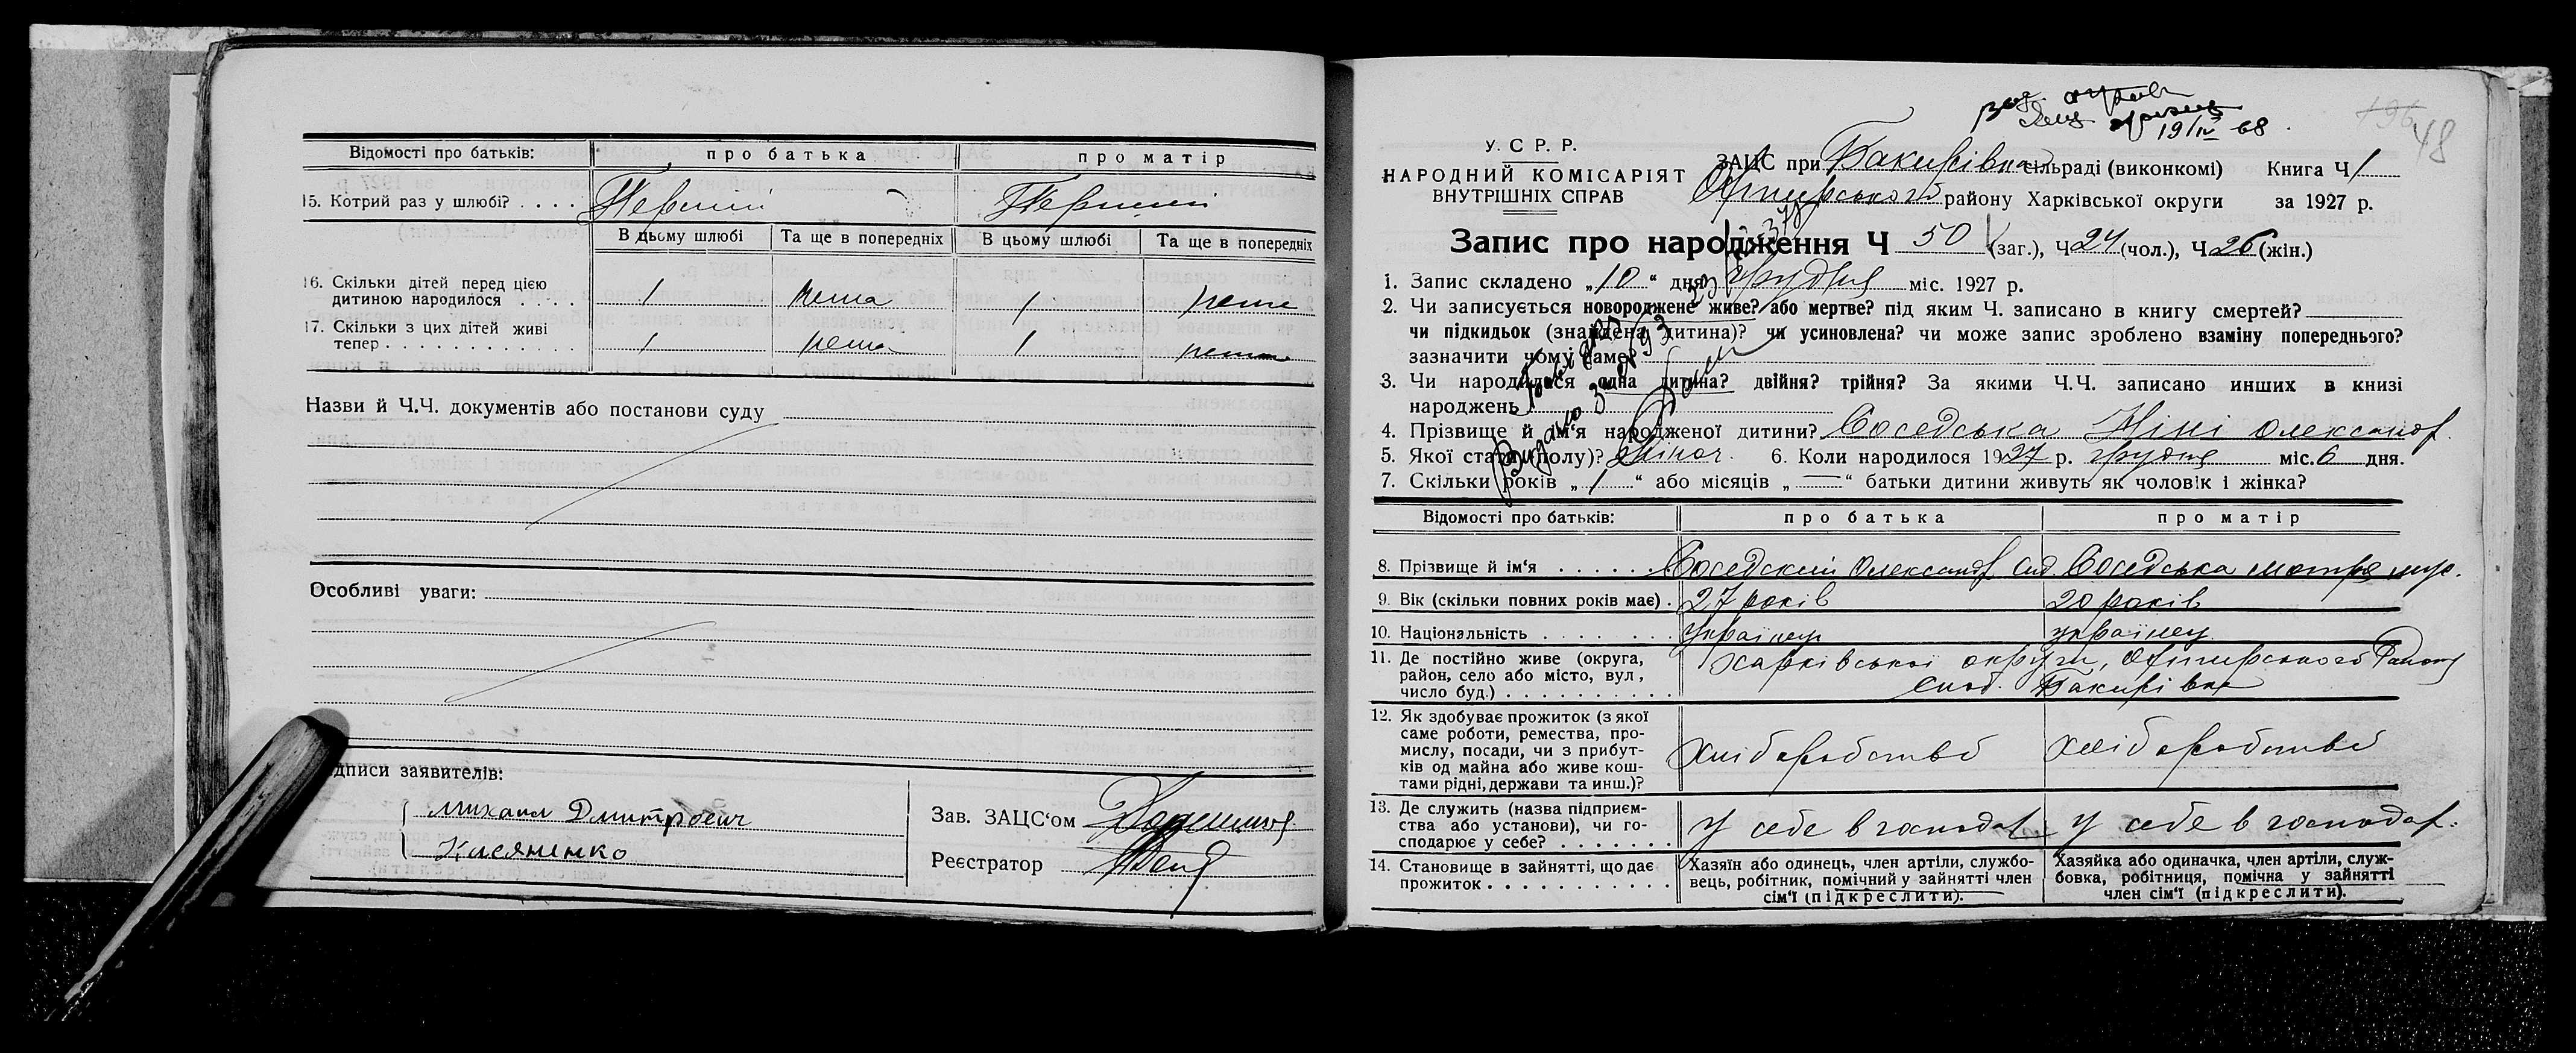 Відомості про батьків: про батька про матір
15. Котрий раз у шлюбі? . . . . Перший Перший
В цьому шлюбі Та ще в попередніх В цьому шлюбі Та ще в попередніх
16. Скільки дітей перед цією
дитиною народилося . . . . 1 нема 1 нема
17. Скільки з цих дітей живі
тепер . . . . . . . . . . . . 1 нема 1 нема
Назви й Ч.Ч. документів або постанови суду
Особливі уваги:
дписи заявителів:
Михаил Дмитрович
Касяненко
Зав. ЗАЦС‘ом
Реєстратор
19/IV 68.
196
48
У. С Р. Р.
НАРОДНИЙ КОМІСАРІЯТ
ВНУТРІШНІХ СПРАВ
ЗАЦС при Бакирівка сільраді (виконкомі) Книга Ч 1
Охтирського району Харківської округи за 1927 р.
Запис про народження Ч 50 (заг.), Ч 24 (чол.), Ч 26 (жін.)
1. Запис складено „10“ дня грудня міс. 1927 р.
2. Чи записується новороджене живе? або мертве? під яким Ч. записано в книгу смертей?
чи підкидьок (знайдена дитина)? чи усиновлена? чи може запис зроблено взаміну попереднього?
зазначити чому саме
3. Чи народилося одна дитина? двійня? трійня? За якими Ч.Ч. записано инших в книзі
народжень
4. Прізвище й ім‘я народженої дитини? Соседська Ніні Олександ.
5. Якої статі (полу)? жіноч. 6. Коли народилося 1927 р. грудня міс. 6 дня.
7. Скільки років „1“ або місяців „—“ батьки дитини живуть як чоловік і жінка?
Видано
Відомості про батьків: про батька про матір
8. Прізвище й ім‘я . . . . . . Соседский Олександр Сид. Соседська Мотря
9. Вік (скільки повних років має) . 27 років 20 років
10. Національність . . . . . . . українец українец
11. Де постійно живе (округа,
район, село або місто, вул,
число буд.) . . . . . . . . . . Харківської округи, Охтирського Району
Бакирівка
12. Як здобуває прожиток (з якої
саме роботи, ремества, про-
мислу, посади, чи з прибут-
ків од майна або живе кош-
тами рідні, держави та инш.)? хліборобством хліборобством
13. Де служить (назва підприєм-
ства або установи), чи го-
сподарює у себе? . . . . . . . У себе в господар. У себе в господар.
14. Становище в зайнятті, що дає
прожиток . . . . . . . . . . .
Хазяїн або одинець, член артіли, службо-
вець, робітник, помічний у зайнятті член
сім‘ї (підкреслити).
Хазяйка або одиначка, член артіли, служ-
бовка, робітниця, помічна у зайнятті
член сім‘ї (підкреслити).